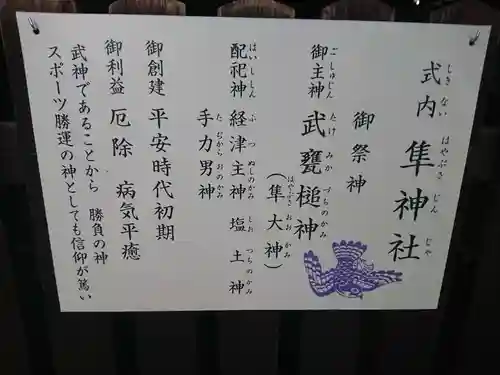 式内 隼神社
しき ない はやぶさ じん じや
御祭神
御主神 武甕槌神
ごしゅじん たけ みか づちのかみ
（隼大神）
はやぶさ おお かみ
配祀神 経津主神 塩土神
はいししん ふつ ぬしのかみ しお つちのかみ
手力男神
たぢから おのかみ
御創建 平安時代初期
御利益 厄除 病気平癒
武神であることから 勝負の神
スポーツ勝運の神としても信仰が篤い